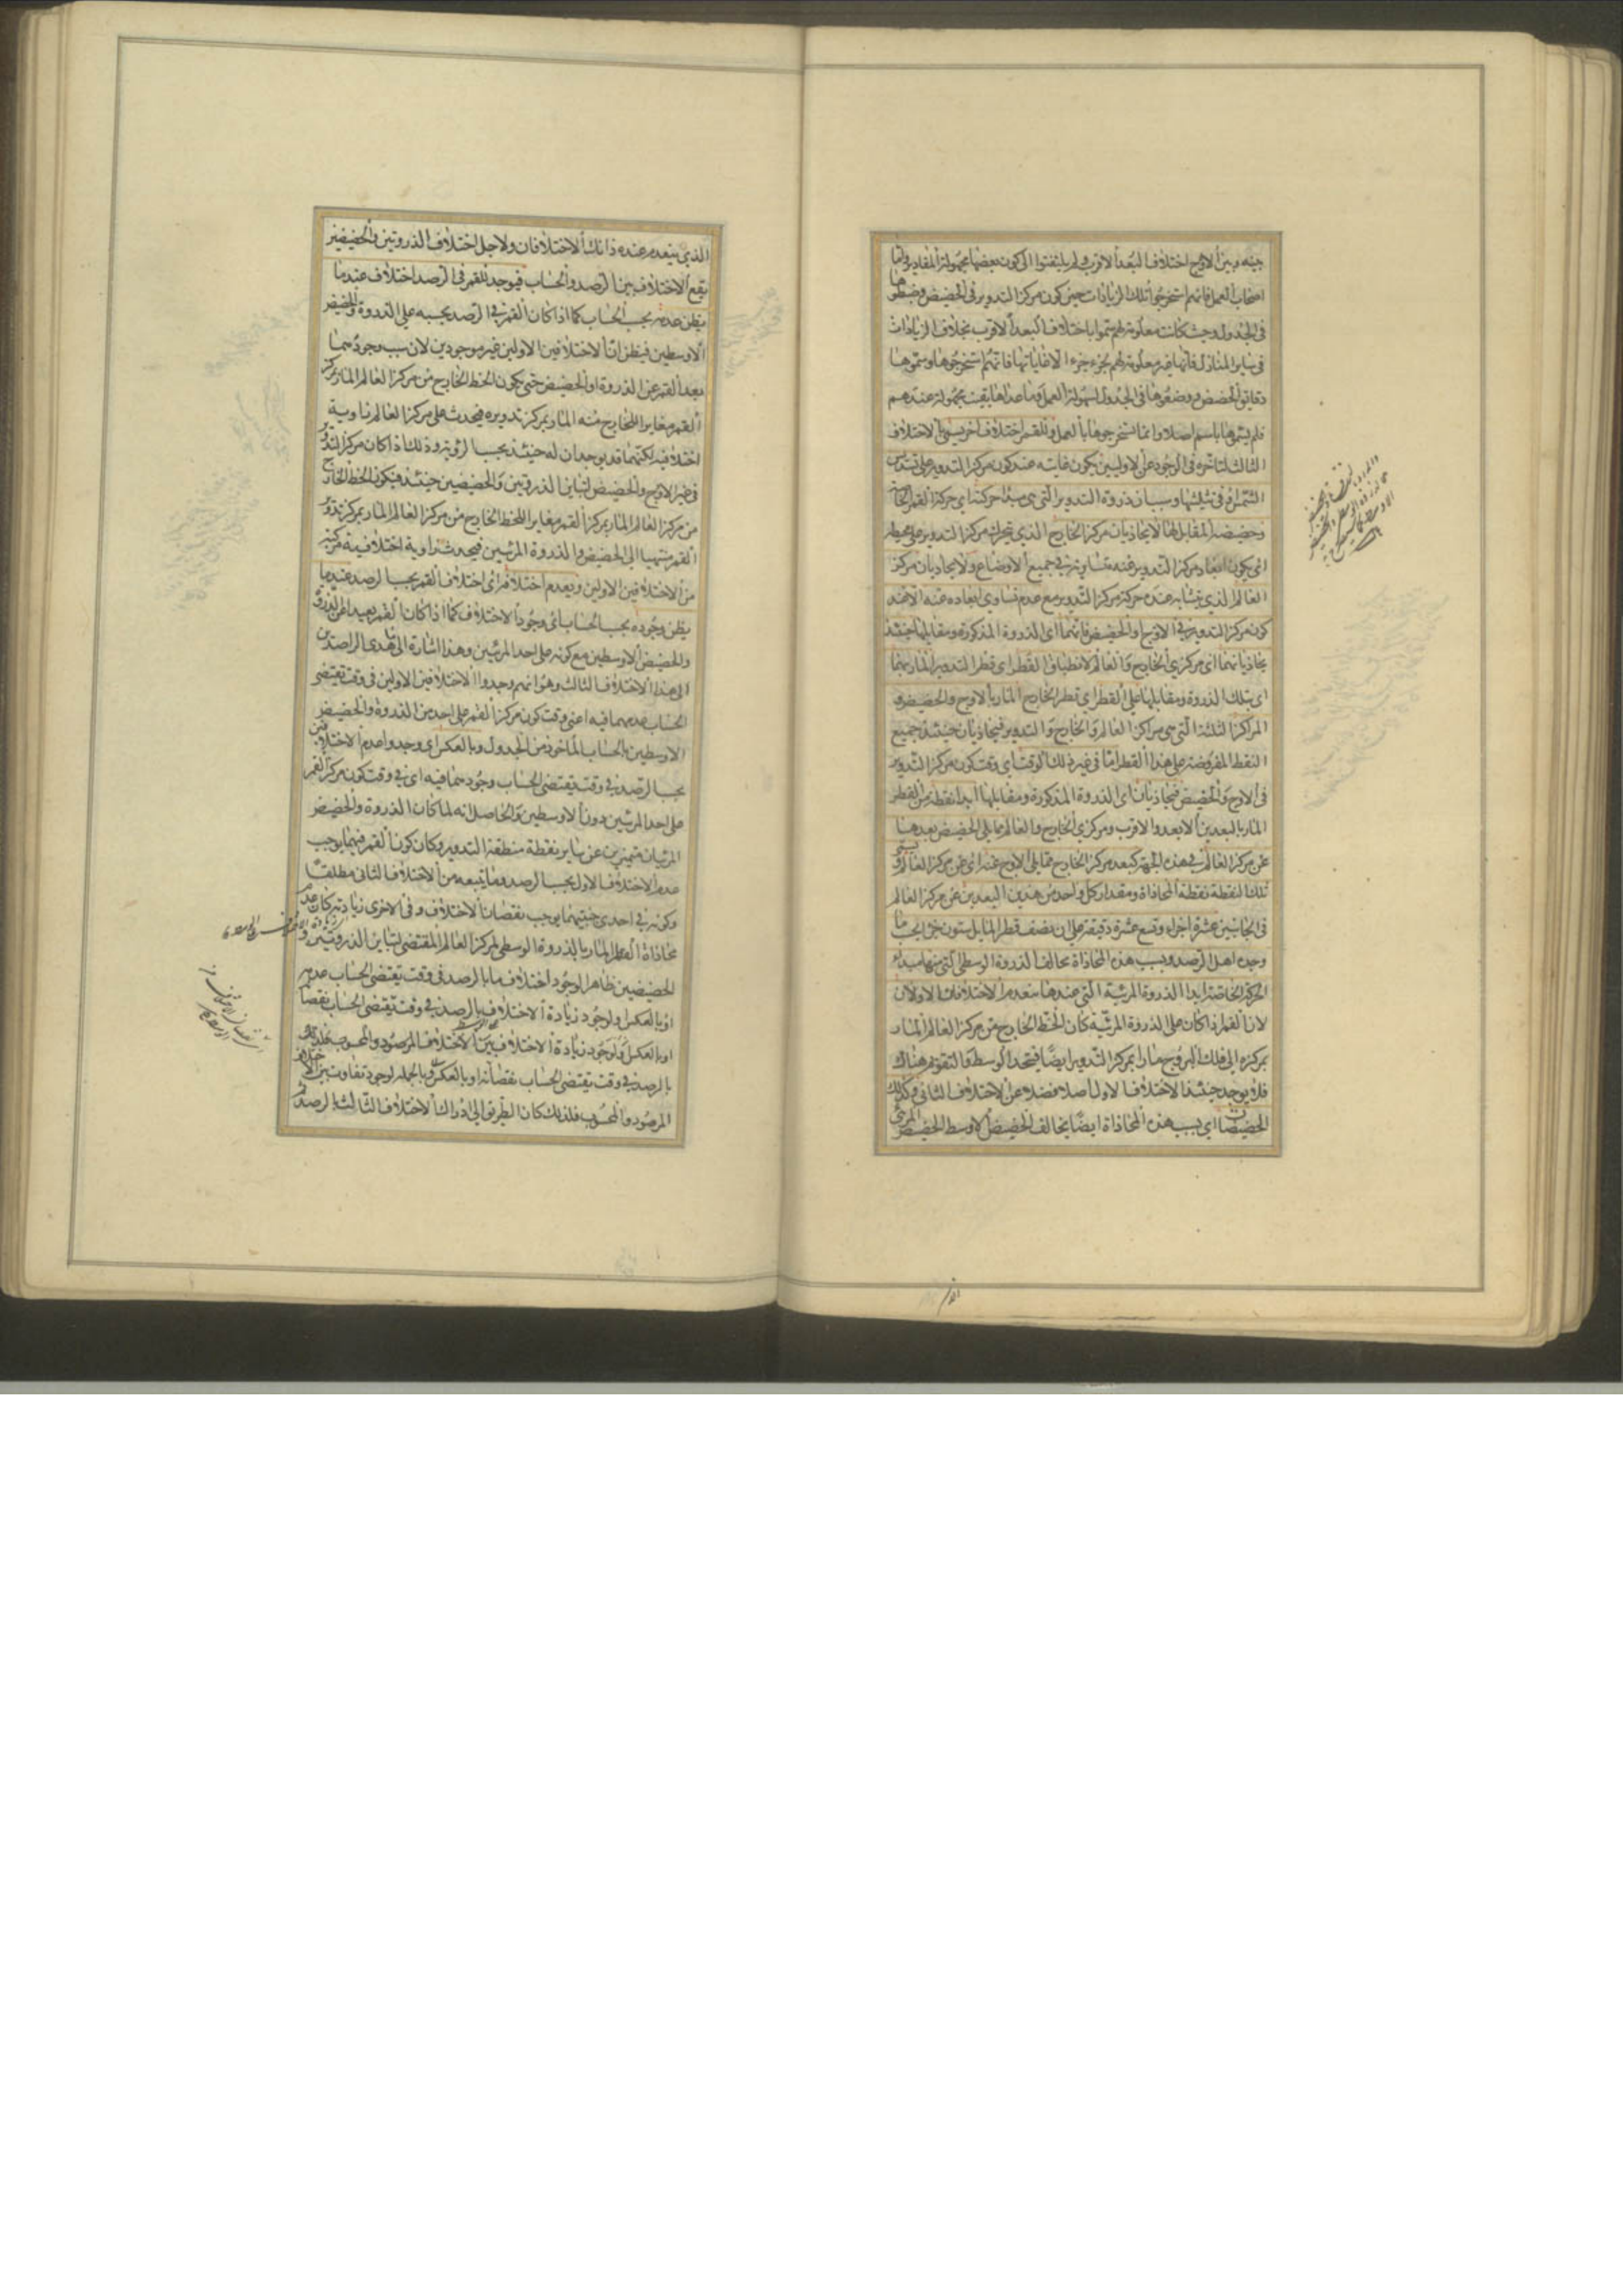 بينه وبين الاوج اختلاف البعد الاقرب ولم يلتفتوا الى كون بعضها مجهولة المقادير واما
اصحاب العمل فانهم استخرجوا تلك الزيادات حين كون مركز التدوير في الحضيض وضبطوها
في الجدول وحيث كانت معلومة لهم سموها باختلاف البعد الاقرب بخلاف الزيادات
في ساير المنازل فانها غير معلومة لهم بجزء جزء الا غاياتها فانهم استخرجوها وسموها
دقايق الحضيض ووضعوها في الجدول لسهولة العمل وما عداها بقيت مجهولة عندهم
فلم يسموها باسم اصلا وانما استخرجوها بالعمل وللقمر اختلاف اخر يسمى بالاختلاف
الثالث لتاخره في الوجود عن الاوليين يكون غايته عند كون مركز التدوير على تسديس
الشمس او في تثليثها وسببه ان ذروة التدوير التي هي مبدا حركته اي حركة القمر الخاصة
وحضيضه المقابل لها لا يحاذيان مركز الخارج الذي يتحرك مركز التدوير على محيطه
اي يكون ابعاد مركز التدوير عنده متساوية في جميع الاوضاع ولا يحاذيان مركز
العالم الذي يتشابه عنده حركة مركز التدوير مع عدم تساوي ابعاده عنه الا عند
كون مركز التدوير في الاوج او الحضيض فانهما اي الذروة المذكورة ومقابلها حينئذ
يحاذيانهما اي مركزي الخارج والعالم لانطباق القطر اي قطر التدوير المار بهما
اي بتلك الذروة ومقابلها على القطر اي قطر الخارج المار بالاوج والحضيض و
المراكز الثلثة التي هي مراكز العالم والخارج والتدوير فيحاذيان حينئذ جميع
النقط المفروضة على هذا القطر اما في غير ذلك الوقت اي وقت كون مركز التدوير
في الاوج والحضيض فيحاذيان اي الذروة المذكورة ومقابلها ابدا نقطة من القطر
المار بالبعدين الابعد والاقرب ومركزي الخارج والعالم مما يلي الحضيض بعدها
عن مركز العالم في هذه الجهة كبعد مركز الخارج مما يلي الاوج عنه اي عن مركز العالم ويسمى
تلك النقطة نقطة المحاذاة ومقدار كل واحد من هذين البعدين عن مركز العالم
في الجانبين عشرة اجزاء وتسع عشرة دقيقة على ان نصف قطر المايل ستون جزءا بحسب ما
وجده اهل الرصد وبسبب هذه المحاذاة يخالف الذروة الوسطى التي منها مبداء
الحركة الخاصة ابدا الذروة المرئية التي عندها ينعدم الاختلافان الاولان
لان القمر اذا كان على الذروة المرئية كان الخط الخارج من مركز العالم المار
بمركزه الى فلك البروج مارا بمركز التدوير ايضا فيتحد الوسط والتقويم هناك
فلا يوجد حينئذ الاختلاف الاول اصلا فضلا عن الاختلاف الثاني وكذلك
الحضيضان اي بسبب هذه المحاذاة ايضا يخالف الحضيض الاوسط الحضيض المرئي
الذي ينعدم عنده ذانك الاختلافان ولاجل اختلاف الذروتين والحضيضين
يقع الاختلاف بين الرصد والحساب فيوجد للقمر في الرصد اختلاف عندما
يظن عدمه بحسب الحساب كما اذا كان القمر في الرصد بحسبه على الذروة والحضيض
الاوسطين فيظن ان الاختلافين الاولين غير موجودين لان سبب وجودهما
بعد القمر عن الذروة او الحضيض حتى يكون الخط الخارج من مركز العالم المار بمركز
القمر مغاير اللخارج منه المار بمركز تدويره فيحدث على مركز العالم زاوية
اختلافية لكنهما قد يوجدان له حينئذ بحسب الرؤية وذلك اذا كان مركز التدوير
في غير الاوج والحضيض لتباين الذروتين والحضيضين حينئذ فيكون الخط الخارج
من مركز العالم المار بمركز القمر مغاير اللخط الخارج من مركز العالم المار بمركز تدوير
القمر منتهيا الى الحضيض والذروة المرئيين فيحدث زاوية اختلافية مركبة
من الاختلافين الاولين ويعدم اختلافه اي اختلاف القمر بحسب الرصد عندما
يظن وجوده بحسب الحساب اي وجود الاختلاف كما اذا كان القمر بعيدا عن الذروة
والحضيض الاوسطين مع كونه على احد المرئيين وهذا اشارة الى ما هدى الراصدين
الى هذا الاختلاف الثالث وهو انهم وجدوا الاختلافين الاولين في وقت يقتضي
الحساب عدمهما فيه اعني وقت كون مركز القمر على احد من الذروة والحضيض
الاوسطين بالحساب الماخوذ من الجدول وبالعكس اي وجدوا عدم الاختلافين
بحسب الرصد في وقت يقتضي الحساب وجودهما فيه اي في وقت كون مركز القمر
على احد المرئيين دون الاوسطين والحاصل انه لما كان الذروة والحضيض
المرئيان متميزين عن ساير نقطة منطقة التدوير وكان كون القمر فيهما يوجب
عدم الاختلاف الاول بحسب الرصد وما يتبعه من الاختلاف الثاني مطلقا
وكونه في احدى جنبتيهما يوجب نقصان الاختلاف وفي الاخرى زيادته كان عدم
محاذاة القطر المار بالذروة الوسطى لمركز العالم المقتضي لتباين الذروتين و
الحضيضين ظاهر الوجود اختلاف ما بالرصد في وقت يقتضي الحساب عدمه
او بالعكس ولوجود زيادة الاختلاف بالرصد في وقت يقتضي الحساب نقصانه
او بالعكس ولوجود زيادة الاختلاف بين الاختلاف المرصود والمحسوب
بالرصد في وقت يقتضي الحساب نقصانه او بالعكس وبالجملة لوجود تفاوت بين الاختلاف
المرصود والمحسوب فلذلك كان الطريق الى ادراك الاختلاف الثالث الرصد